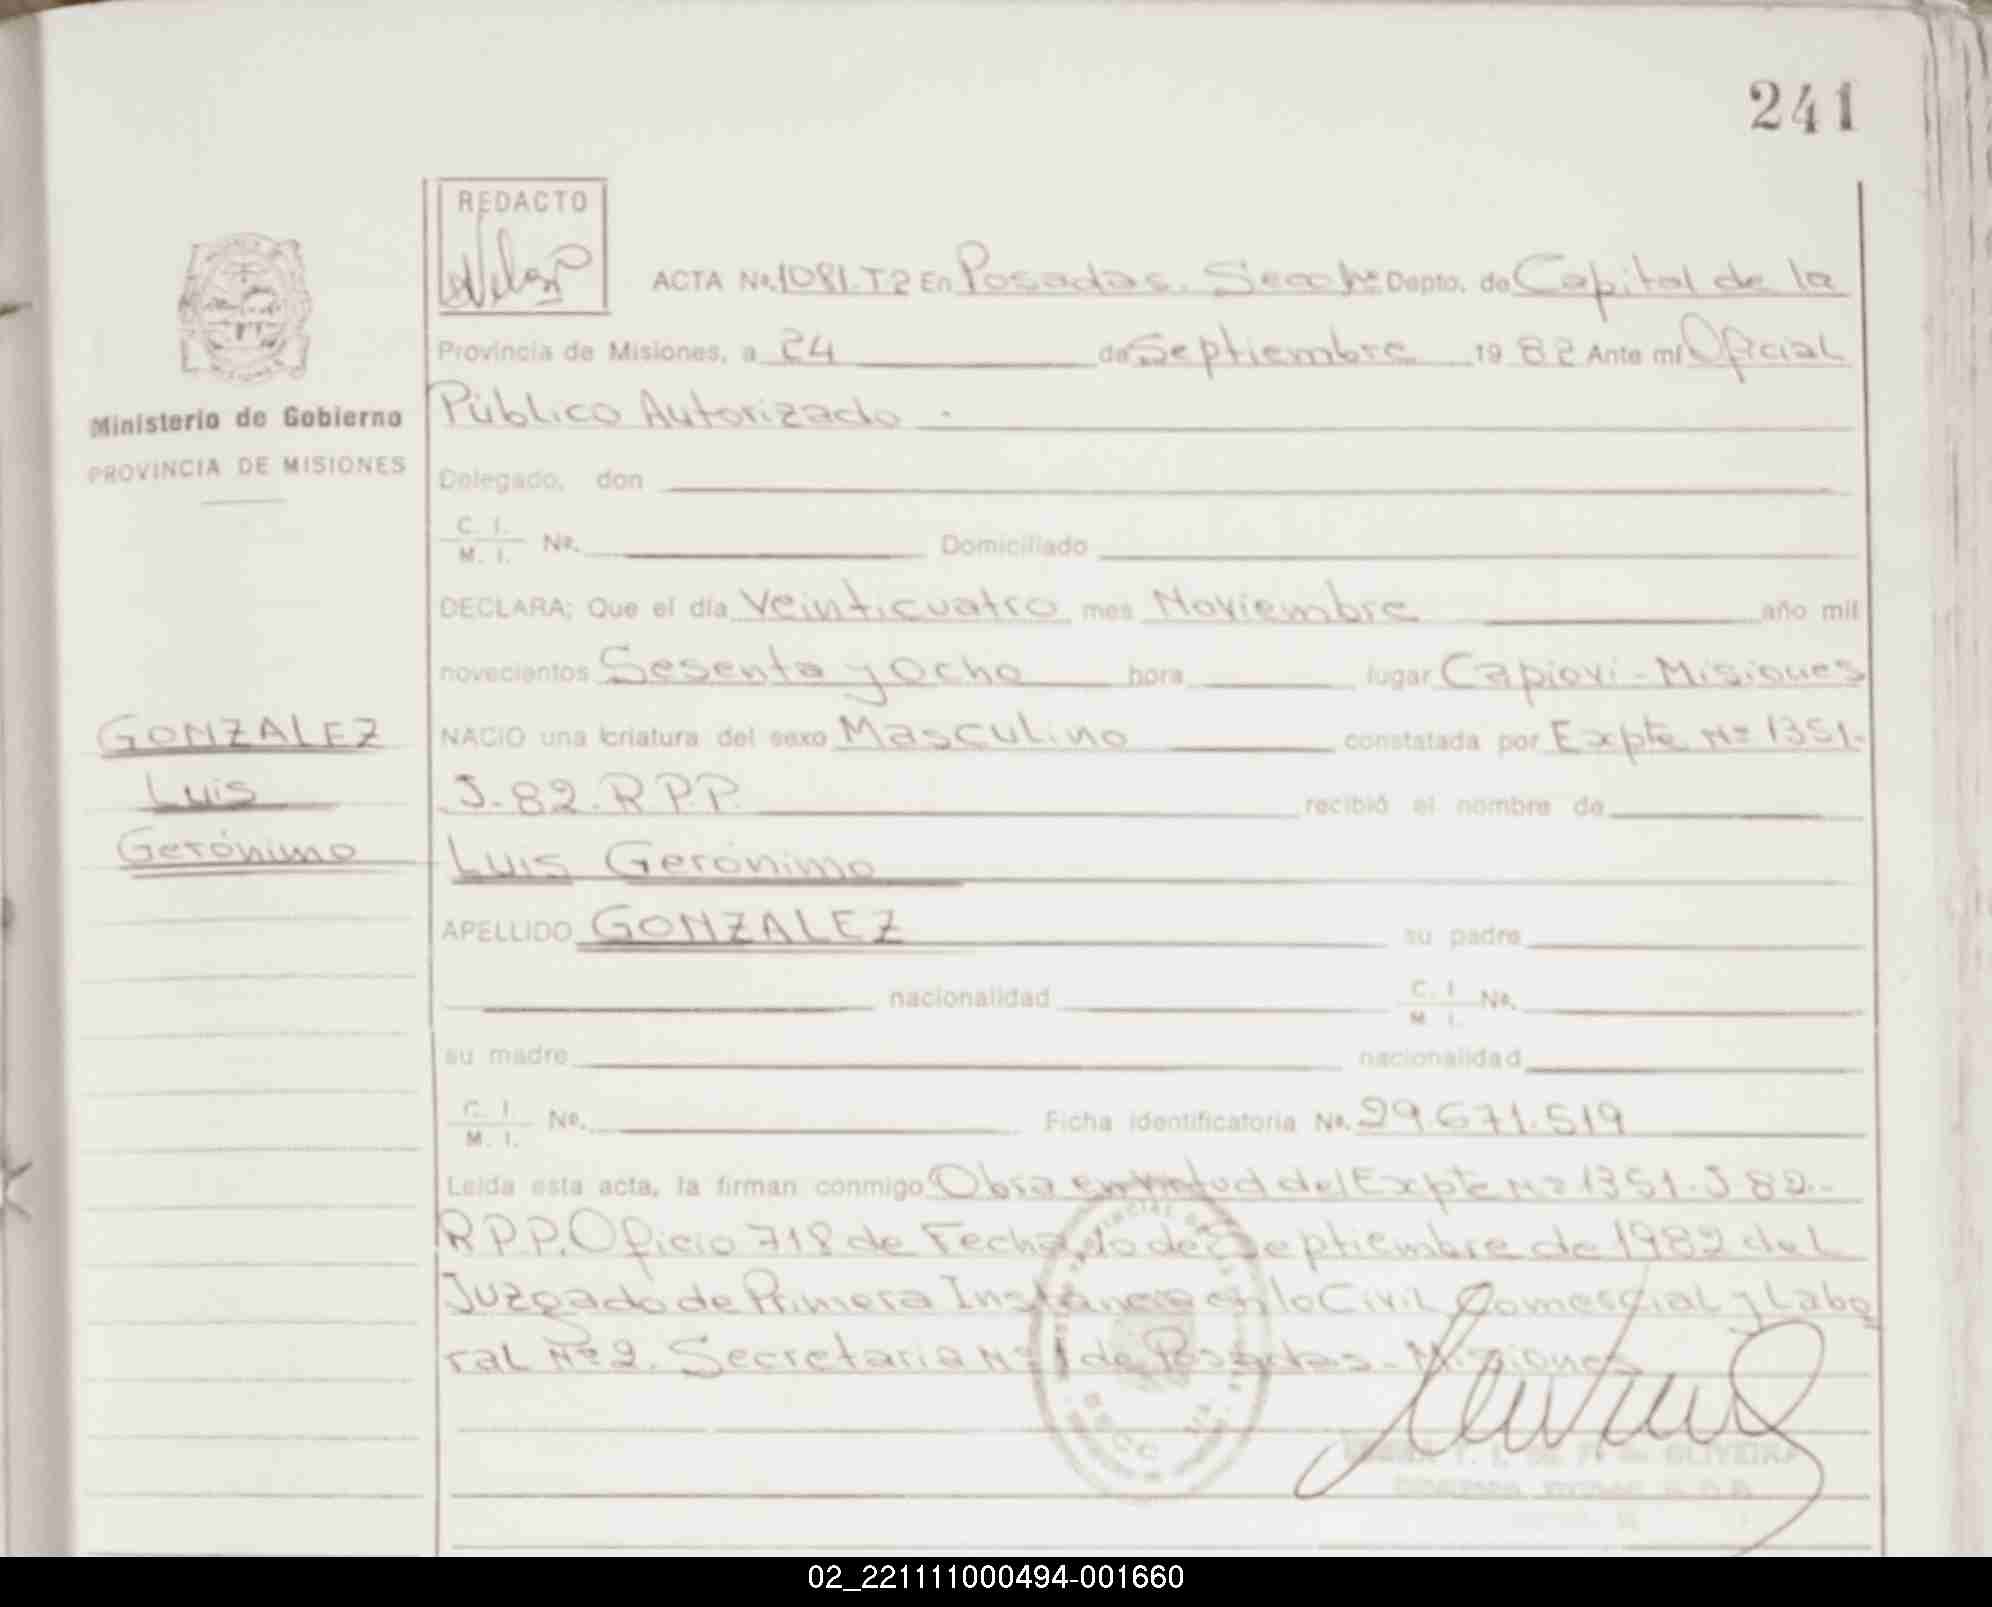 241
REDACTO
ACTA No. 1081.T2 En Posadas. Depto. de Capital de la
Provincia de Misiones, a 24 de Septiembre 1982 Ante mí Oficial
Ministerio de Gobierno
PROVINCIA DE MISIONES
Público Autorizado .
Delegado, don
C. I.
M. I. No. Domiciliado
DECLARA; Que el día Veinticuatro mes Noviembre año mil
novecientos Sesenta y Ocho hora lugar Capioví - Misiones
GONZALEZ
Luis
Gerónimo
NACIO una criatura del sexo Masculino constatada por Expte Nº 1351-
J-82. R.P.P. recibió el nombre de
Luis Gerónimo
APELLIDO GONZALEZ su padre
nacionalidad C. I. M. I. No.
su madre nacionalidad
C. I.
M. I. No. Ficha identificatoria No. 29.671.519
Leída esta acta, la firman conmigo Obra en virtud del Expte Nº 1351. J 82.-
R.P.P. Oficio 718 de Fecha de Septiembre de 1982 del
Juzgado de Primera Instancia en lo Civil Comercial y Labo
ral Nº 2. Secretaria Nº 1 de Posadas - Misiones
OLIVEIRA
02_221111000494-001660